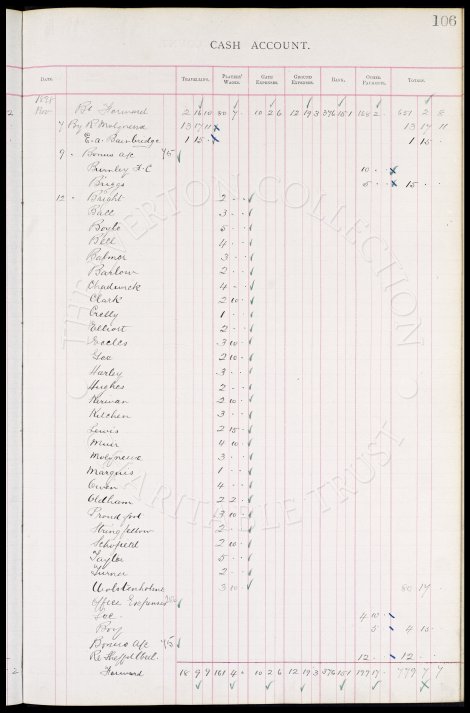 106
CASH ACCOUNT.
DATE. TRAVELLING. PLAYERS' WAGES. GATE EXPENSES. GROUND EXPENSES. BANK. OTHER PAYMENTS. TOTALS.
1898
Nov Bt Forward 2 16 10 80 7 10 2 6 12 19 3 376 15 1 168 2 651 2 8
7 By R Molyneux 13 17 11 13 17 11
E. A. Bainbridge 1 15 1 15
9 Bonus a/c
Burnley F. C 10
Briggs 5 15
12 Bright 2
Ball 3
Boyle 5
Bell 4
Balmer 3
Barlow 2
Chadwick 4
Clark 2 10
Crelly 1
Elliott 2
Eccles 3 10
Gee 2 10
Hartley 3
Hughes 2
Kirwan 2 10
Kitchen 3
Lewis 2 15
Muir 4 10
Molyneux 3
Marquis 1
Owen 4
Oldham 2 2
Proudfoot 3 10
Stringfellow 2
Schofield 2 10
Taylor 5
Turner 2
Wolstenholme 3 10 80 17
Office Expenses
4 10
Boy 5 4 15
Bonus a/c
Re Sheffield 12 12
2 Forward 18 9 9 161 4 10 2 6 12 19 3 376 15 1 199 17 779 7 7
THE EVERTON COLLECTION
CHARITABLE TRUST